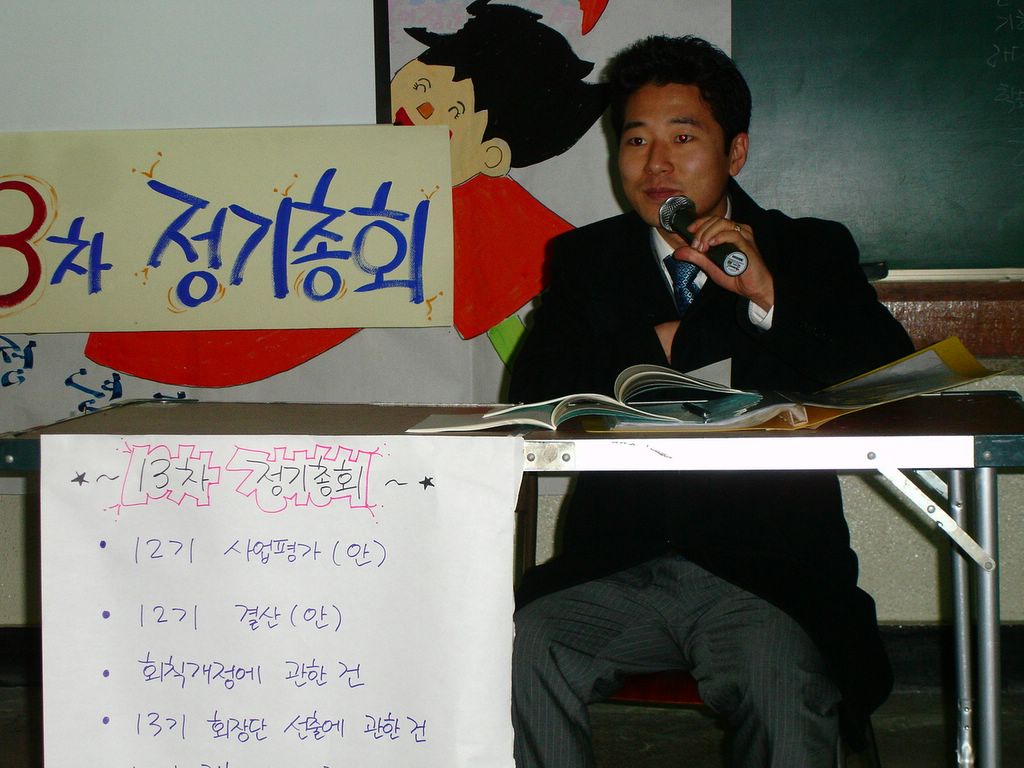 3차 정기총회
~ 13차 정기총회 ~
• 12기 사업평가(안)
• 12기 결산(안)
• 회칙개정에 관한 건
• 13기 회장단 선출에 관한 건